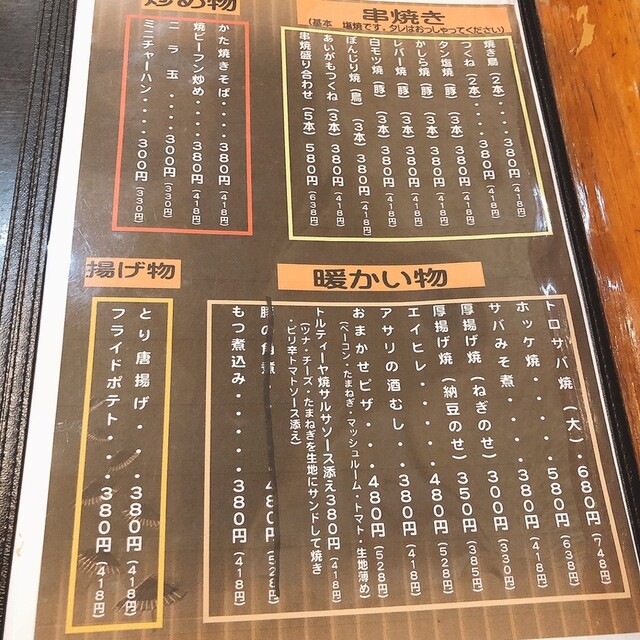 串焼き
(基本 塩焼です。タレはおっしゃってください)
焼き鳥(2本)・・・・380円(418円)
つくね(2本)・・・・380円(418円)
タン塩焼(豚)(3本)380円(418円)
かしら焼(豚)(3本)380円(418円)
レバー焼(豚)(3本)380円(418円)
白モツ焼(豚)(3本)380円(418円)
ぼんじり焼(鳥)(3本)380円(418円)
あいがもつくね(3本)380円(418円)
串焼盛り合わせ(5本)580円(638円)
炒め物
かた焼きそば・・・380円(418円)
焼ビーフン炒め・・・380円(418円)
ニラ玉・・・・300円(330円)
ミニチャーハン・・・300円(330円)
暖かい物
トロサバ焼(大)・680円(748円)
ホッケ焼・・・・・580円(638円)
サバみそ煮・・・・380円(418円)
厚揚げ焼(ねぎのせ)300円(330円)
厚揚げ焼(納豆のせ)350円(385円)
エイヒレ・・・・・480円(528円)
アサリの酒むし・・380円(418円)
おまかせピザ・・・480円(528円)
(ベーコン・たまねぎ・マッシュルーム・トマト・生地薄め)
トルティーヤ焼サルサソース添え380円(418円)
(ツナ・チーズ・たまねぎを生地にサンドして焼き
・ピリ辛トマトソース添え)
豚の角煮・・・・480円(528円)
もつ煮込み・・・・・380円(418円)
揚げ物
とり唐揚げ・・・380円(418円)
フライドポテト・・・380円(418円)